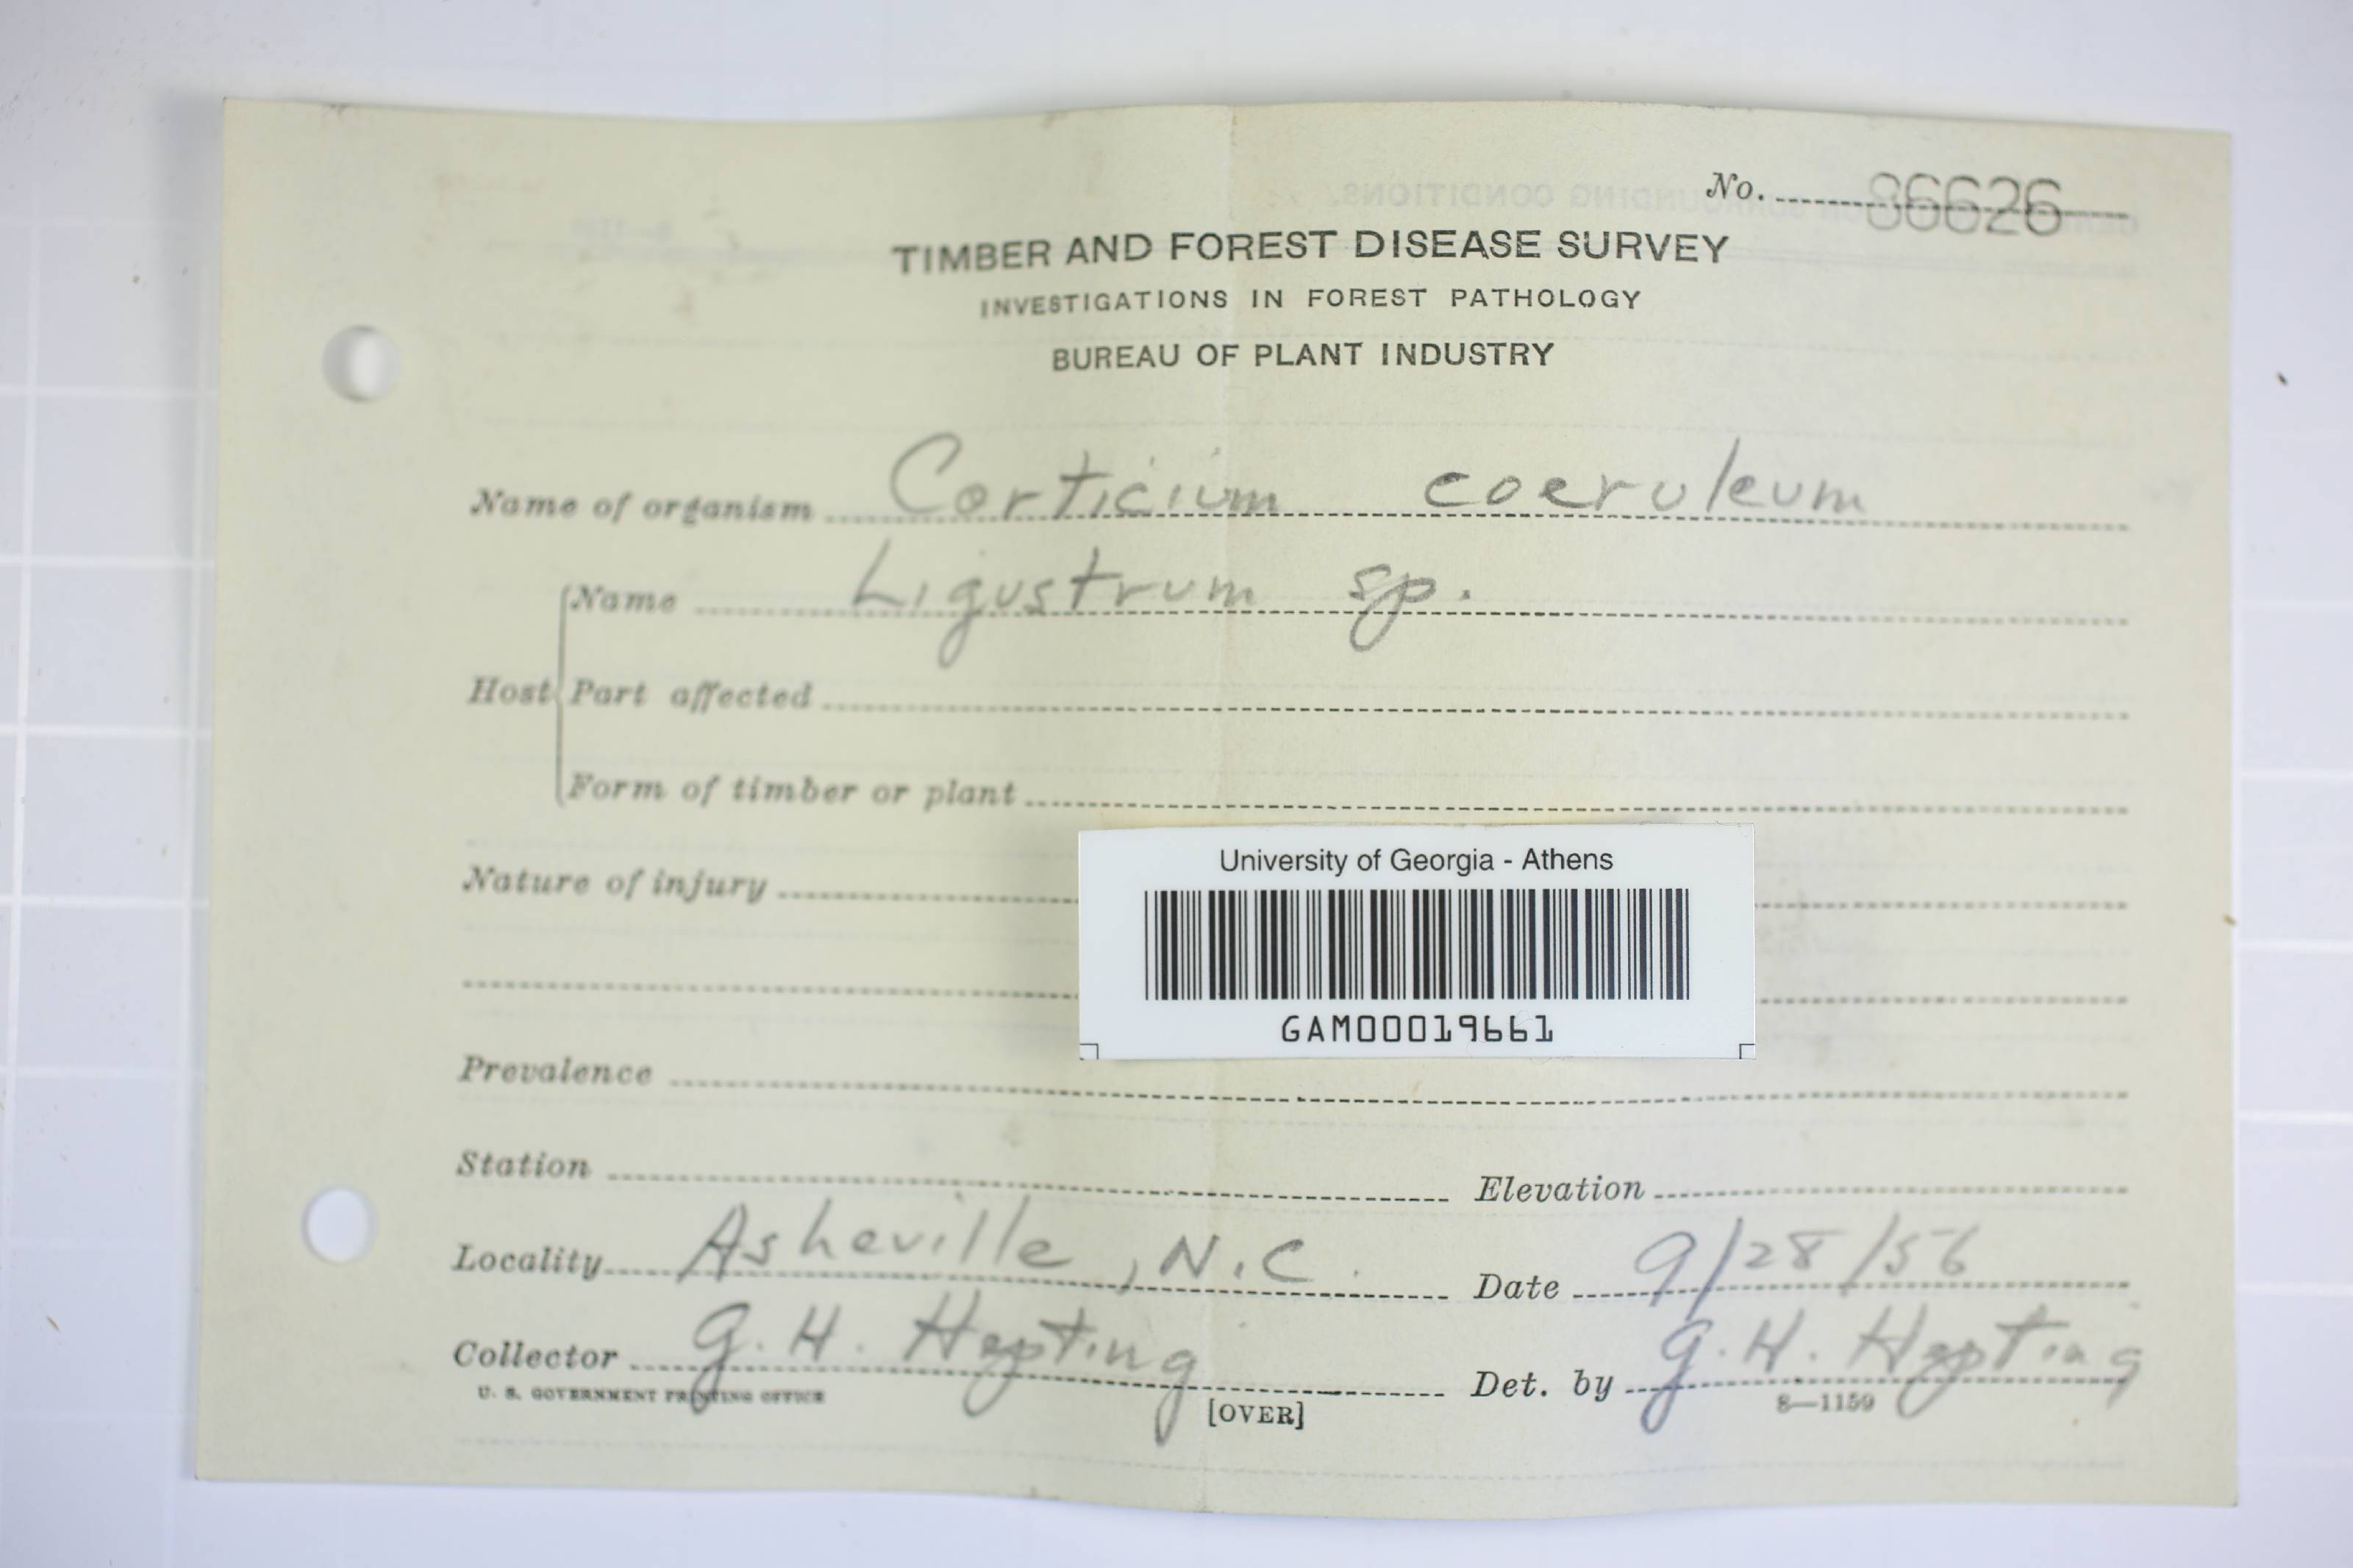 No. 86626
TIMBER AND FOREST DISEASE SURVEY
INVESTIGATIONS IN FOREST PATHOLOGY
BUREAU OF PLANT INDUSTRY
Name of organism Corticium coeruleum
Host Name Ligustrum sp.
Part affected
Form of timber or plant
Nature of injury
University of Georgia - Athens
GAM00019661
Prevalence
Station Elevation
Locality Asheville, N.C. Date 9/28/56
Collector G. H. Hepting Det. by G. H. Hepting
U. S. GOVERNMENT PRINTING OFFICE [OVER] 8—1159